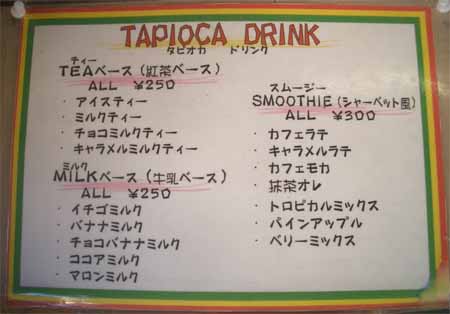 TAPIOCA DRINK
タピオカ ドリンク
ティー
TEAベース(紅茶ベース)
ALL ¥250
・アイスティー
・ミルクティー
・チョコミルクティー
・キャラメルミルクティー
ミルク
MILKベース(牛乳ベース)
ALL ¥250
・イチゴミルク
・バナナミルク
・チョコバナナミルク
・ココアミルク
・マロンミルク
スムージー
SMOOTHIE(シャーベット風)
ALL ¥300
・カフェラテ
・キャラメルラテ
・カフェモカ
・抹茶オレ
・トロピカルミックス
・パインアップル
・ベリーミックス